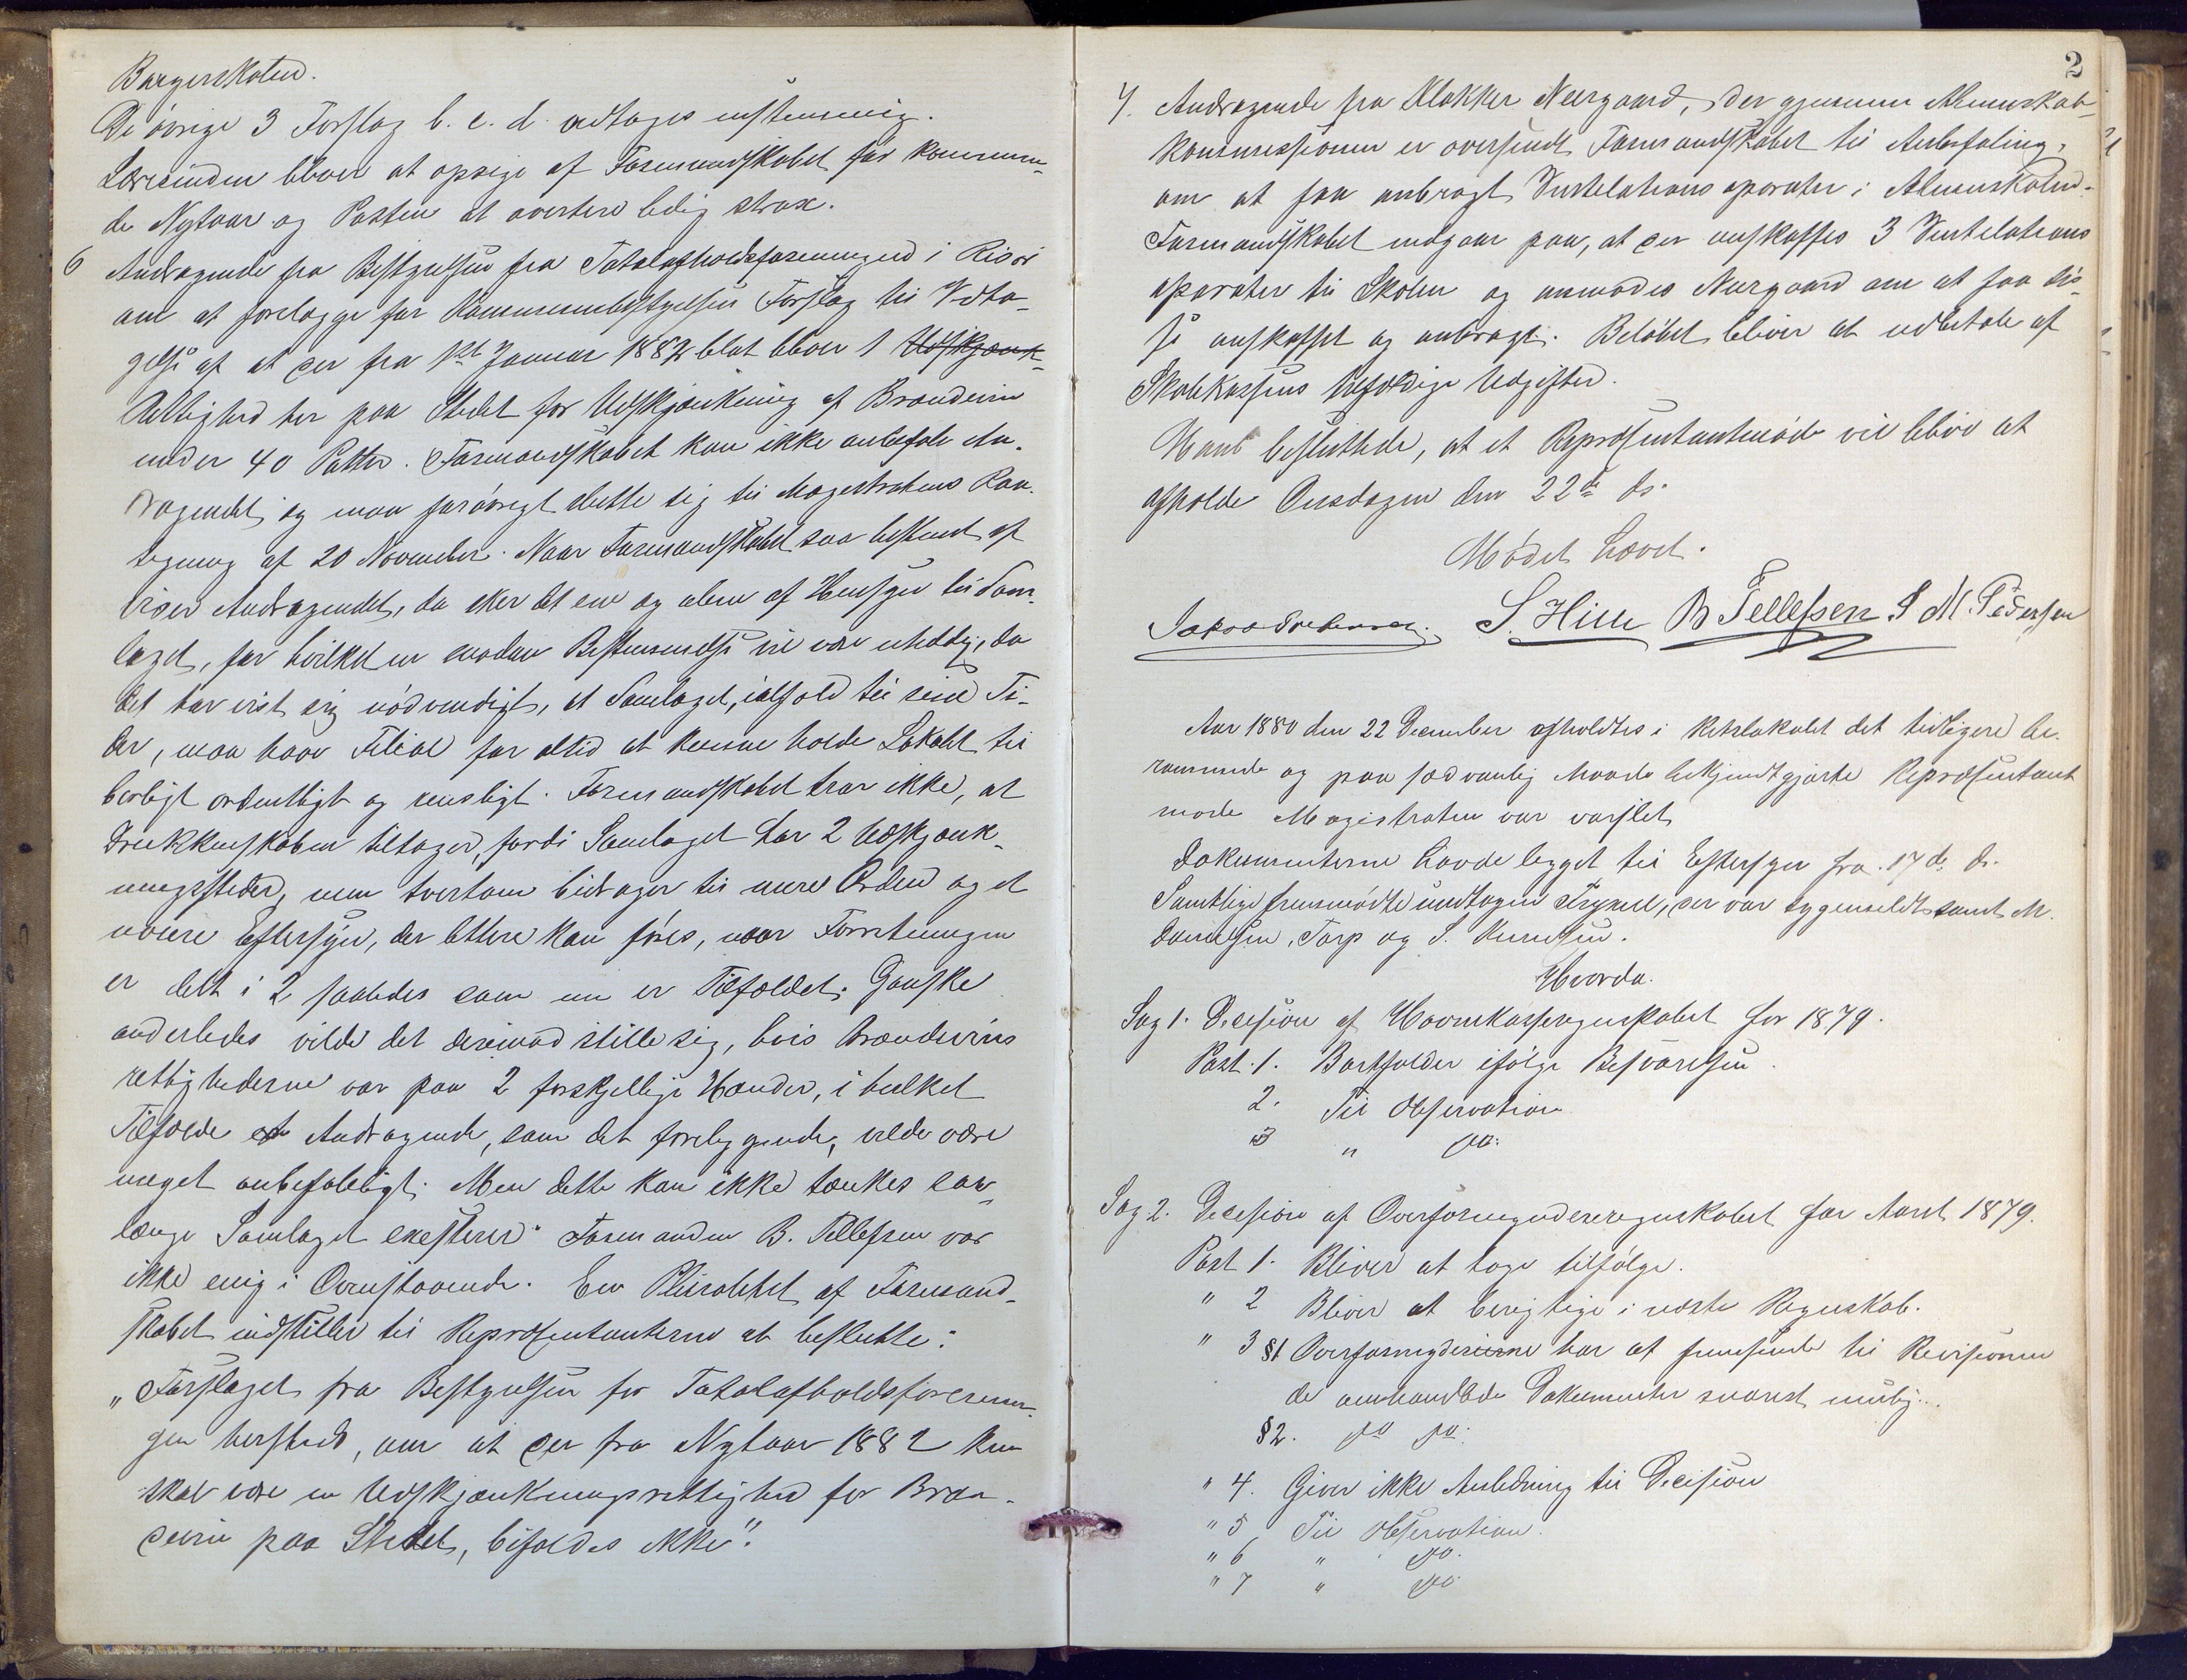 Borgerskolen.
De övrige 3 Forslag b. c. d. vedtages enstemmig.
Lærerinden bliver at opsige af Formandskabet før kommen-
de Nytaar og Posten at avertere ledig strax.
6 Andragende fra Bestyrelsen fra Totalafholdsforeningen i Risör
om at forelægge for Kommunebestyrelsen Forslag til Vedta-
gelse af at der fra 1ste Januar 1882 blot bliver 1 Udskjænk-
Rettighed her paa Stedet for Udskjænkning af Brændevin
under 40 Potter. Formandskabet kan ikke anbefale An-
dragendet og maa forövrigt slutte sig til Magistratens Paa-
tegning af 20 November. Naar Formandskabet saa bestemt af-
viser Andragendet, da sker det ene og alene af Hensyn til Sam-
laget, for hvilket en saadan Bestemmelse vil være uheldig, da
det har vist sig nödvendigt, at Samlaget, ialfald til sine Ti-
der, maa have Filial for altid at kunne holde Lokalet til-
börligt ordentligt og rensligt. Formandskabet tror ikke, at
Drukkenskaben tiltager, fordi Samlaget har 2 Udskjænk-
ningssteder, men tvertom bidrager til mere Orden og et
nöiere Eftersyn, der lettere kan föres, naar Forretningen
er delt i 2 saaledes som nu er Tilfældet. Ganske
anderledes vilde det derimod stille sig, hvis Brændevins
rettighederne var paa 2 forskjellige Hænder, i hvilket
Tilfælde et Andragende, som det foreliggende, vilde være
meget anbefaleligt. Men dette kan ikke tænkes saa
længe Samlaget existerer." Formanden B. Tellefsen var
ikke enig i Ovenstaaende. En Pluralitet af Formand-
skabet indstiller til Repræsentanterne at beslutte:
"Forslaget fra Bestyrelsen for Totalafholdsforenin-
gen hersteds, om at der fra Nytaar 1882 kun
skal være en Udskjænkningsrettighed for Bræn-
devin paa Stedet, bifaldes ikke".
2
7. Andragende fra Klokker Neergaard, der gjennem Almueskole-
kommissionen er oversendt Formandskabet til Anbefaling,
om at faa anbragt Ventelations aparater i Almueskolen.
Formandskabet indgaar paa, at der anskaffes 3 Ventelations
aparater til Skolen og anmodes Neergaard om at faa dis-
se anskaffet og anbragt. Belöbet bliver at udbetale af
Skolekassens tilfældige Udgifter.
Man besluttede, at et Repræsentantmöde vil blive at
afholde Onsdagen den 22de ds.
Mödet hævet.
S. Hille B Tellefsen S M. Pedersen
Aar 1880 den 22 December afholdtes i Retslokalet det tidligere be-
rammede og paa sædvanlig Maade bekjendtgjorte Repræsentant
möde Magistraten var varslet
Dokumenterne havde ligget til Eftersyn fra 17 de ds.
Samtlige fremmödte undtagen , der var sygemeldt samt M.
Danielsen, Torp og S. Knudsen.
Hvorda.
Sag 1. Decision af Havnekasseregnskabet for 1879.
Post. 1. Bortfalder ifölge Besvarelsen.
2. Til Observation
3 " do:
Sag. 2. Decision af Overformynderregnskabet for Aaret 1879.
Post 1. Bliver at tage tilfölge.
" 2 Bliver at berigtige i næste Regnskab.
" 3 §1 Overformynderierne har at fremsende til Revisionen
de omhandlede Dokumenter snarest mulig.
§2. do do.
" 4. Giver ikke Anledning til Decision
" 5, Til Observation.
" 6 " do.
" 7 " do